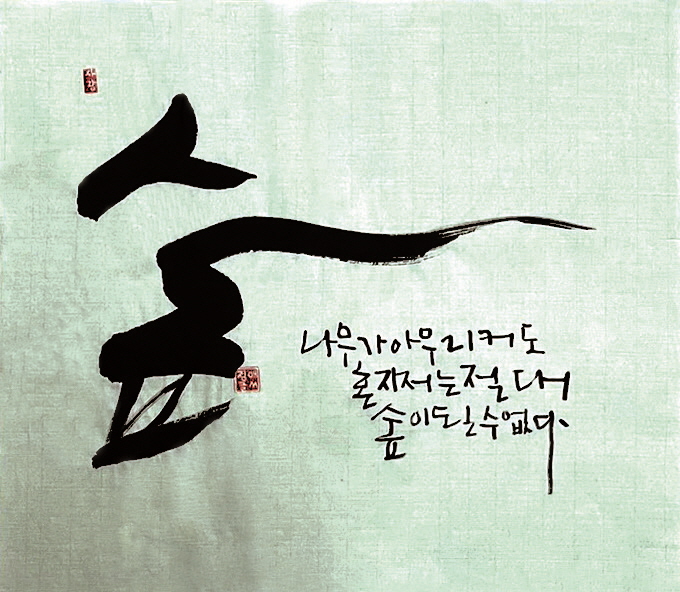 사랑
숲
나무가 아무리 커도
혼자서는 절대
숲이 될 수 없다.